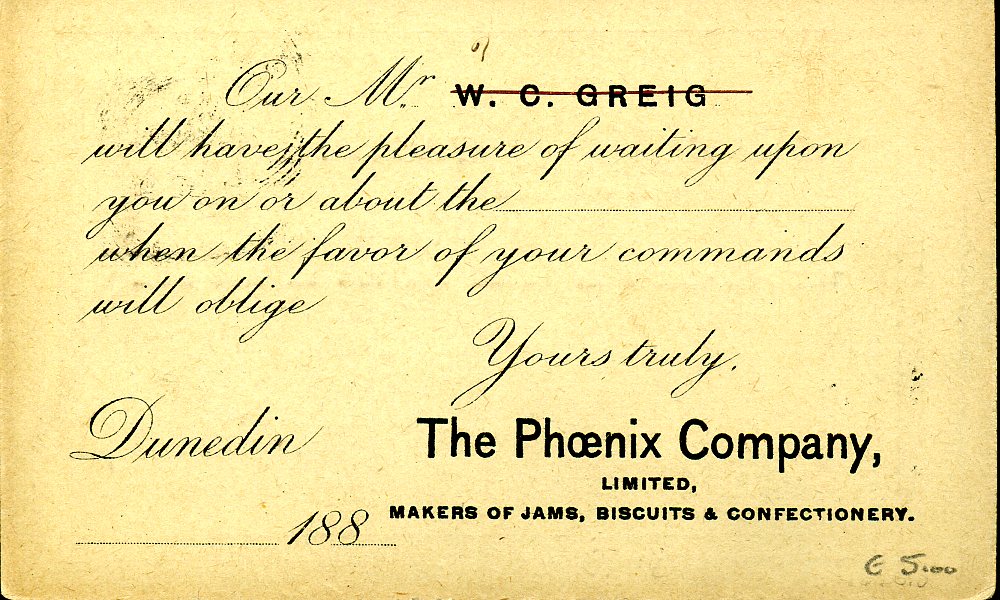 Our Mr. W. C. GREIG
will have the pleasure of waiting upon
you on or about the
when the favor of your commands
will oblige
Yours truly,
Dunedin
The Phœnix Company,
LIMITED,
MAKERS OF JAMS, BISCUITS & CONFECTIONERY.
188
5.00